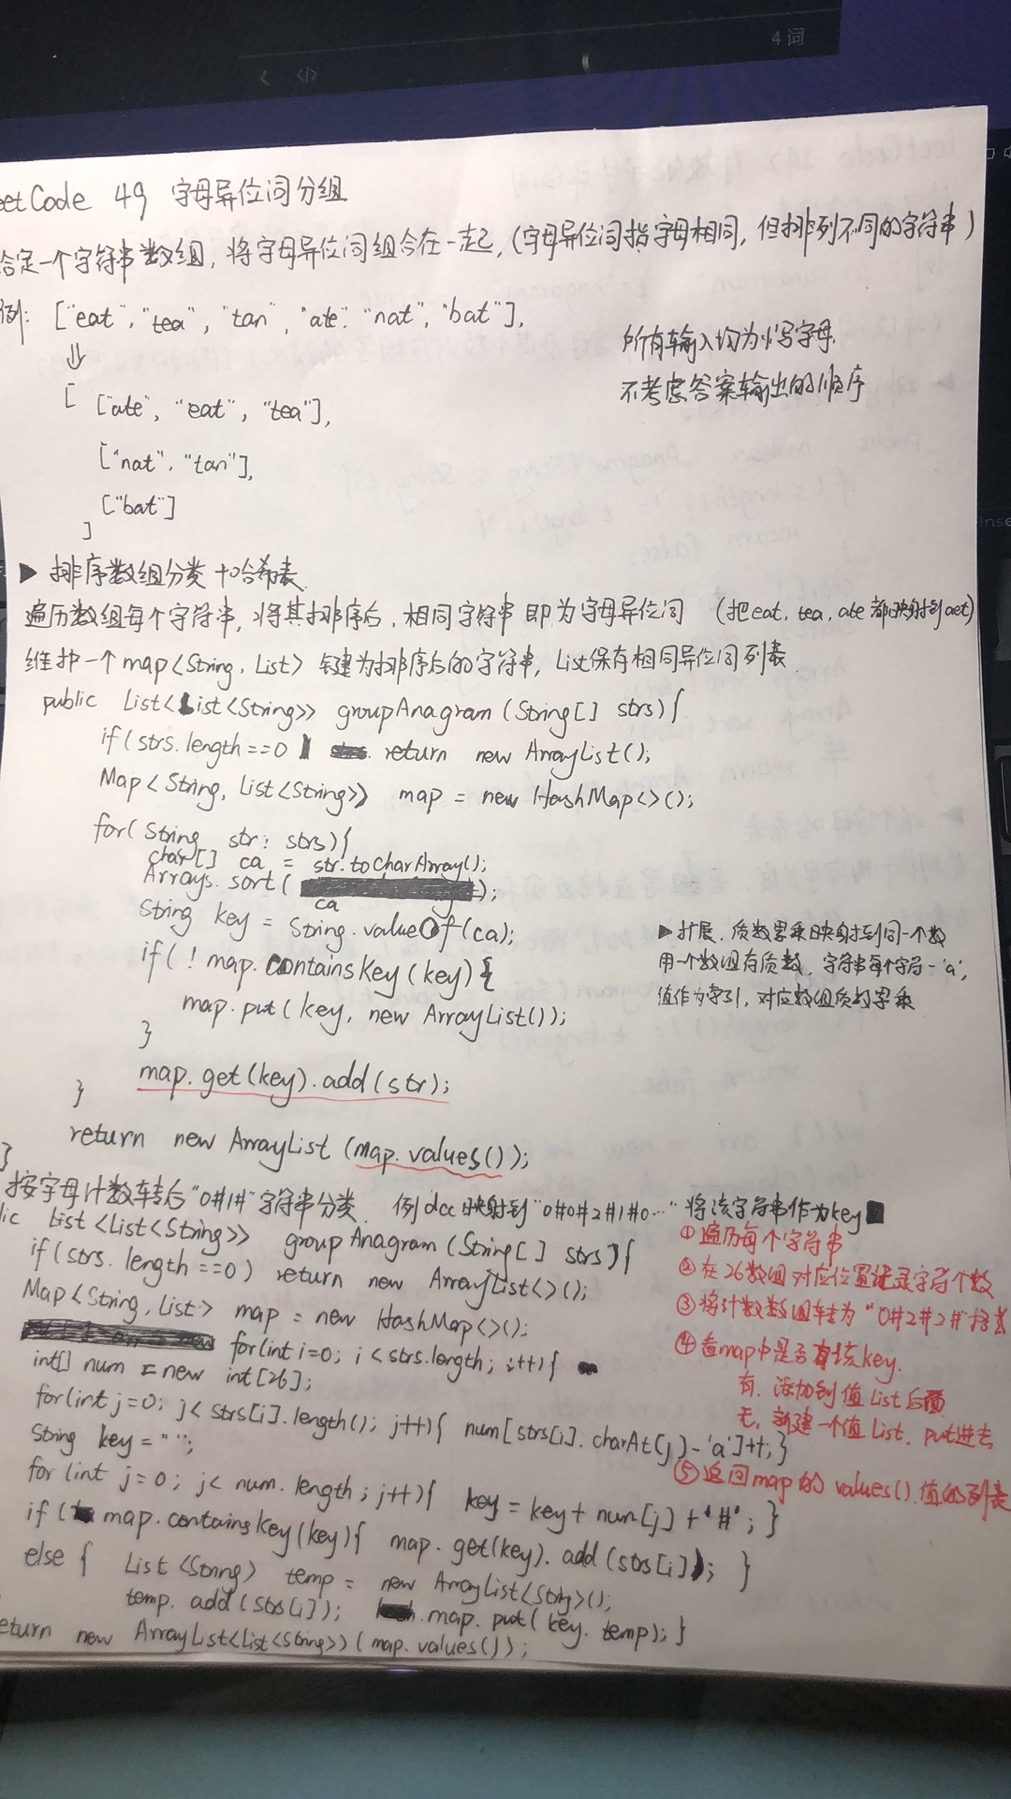 4 词
eetCode 49 字母异位词分组
给定一个字符串数组, 将字母异位词组合在一起, (字母异位词指字母相同, 但排列不同的字符串)
例: ["eat", "tea", "tan", "ate". "nat", "bat"],
⇓
所有输入均为小写字母.
不考虑答案输出的顺序
[ ["ate", "eat", "tea"],
["nat", "tan"],
["bat"]
]
▶ 排序数组分类+哈希表
遍历数组每个字符串, 将其排序后, 相同字符串即为字母异位词 (把eat, tea, ate都映射到aet)
维护一个map<String, List> 键为排序后的字符串, List保存相同异位词列表
public List<List<String>> groupAnagram (String[] strs){
if(strs.length==0) return new ArrayList();
Map<String, List<String>> map = new HashMap<>();
for(String str: strs){
char[] ca = str.toCharArray();
Arrays.sort( ca );
String key = String.valueOf(ca);
if( ! map.containsKey(key) {
map.put(key, new ArrayList());
}
map.get(key).add(str);
}
return new ArrayList (map.values());
}
▶ 扩展. 质数累乘映射到同一个数
用一个数组存质数, 字符串每个字符-'a',
值作为索引, 对应数组质数累乘
按字母计数转后"0#1#"字符串分类. 例dcc映射到"0#0#2#1#0…" 将该字符串作为key
lic List<List<String>> groupAnagram (String[] strs){
if(strs.length==0) return new ArrayList<>();
Map<String, List> map = new HashMap<>();
for(int i=0; i<strs.length; i++){
int[] num = new int[26];
for(int j=0; j<strs[i].length(); j++){ num[strs[i].charAt(j)-'a']++; }
String key = "";
for (int j=0; j< num.length; j++){ key = key+num[j]+'#'; }
if ( map.containsKey(key){ map.get(key).add(strs[i]); }
else { List<String> temp = new ArrayList<String>();
temp.add(strs[i]); map.put(key, temp); }
eturn new ArrayList<List<String>>(map.values());
① 遍历每个字符串
② 在26数组对应位置记录字符个数
③ 将计数数组转为"0#2#2#"格式
④ 看map中是否有该key.
有. 添加到值List后面
无. 新建一个值List, put进去
⑤ 返回map的values().值的列表